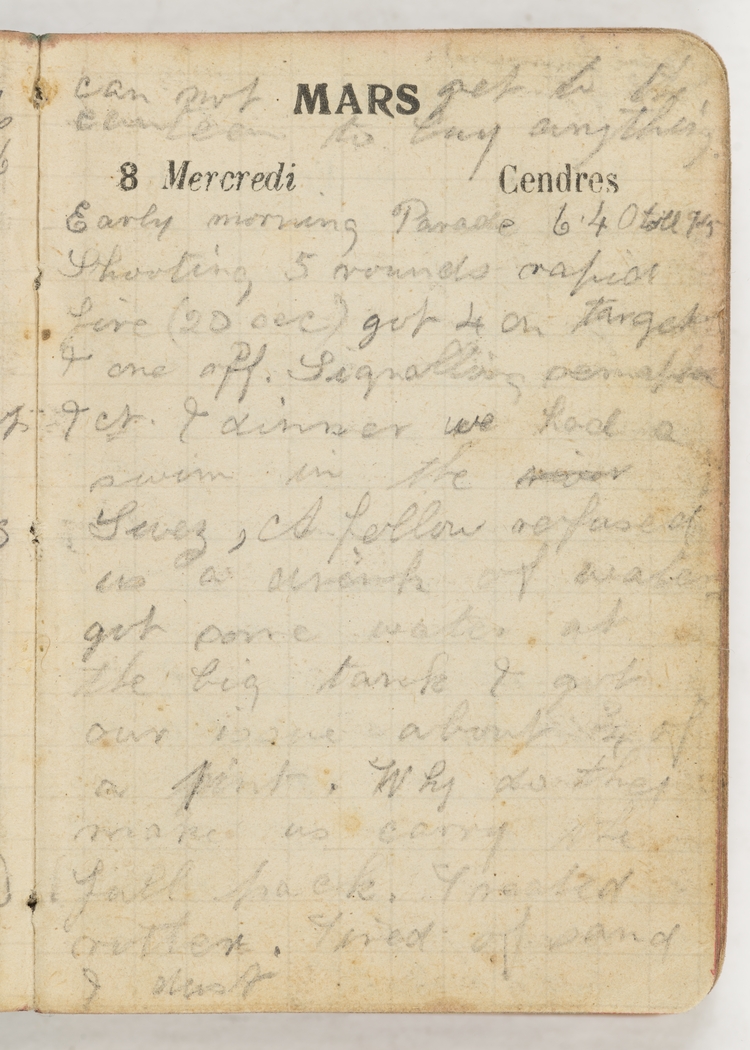 can not MARS get to the
canteen to buy anything.
8 Mercredi Cendres
Early morning Parade 6.40 till 7.45
Shooting 5 rounds rapid
fire (20 sec) got 4 on target
& one off. Signalling
& dinner we had a
swim in the river
Suez, A fellow refused
us a drink of water
got some water at
the big tank & got
our issue about 3/4 of
a pint. Why do they
make us carry the
full pack. Treated
rotten. Tired of sand
& dust